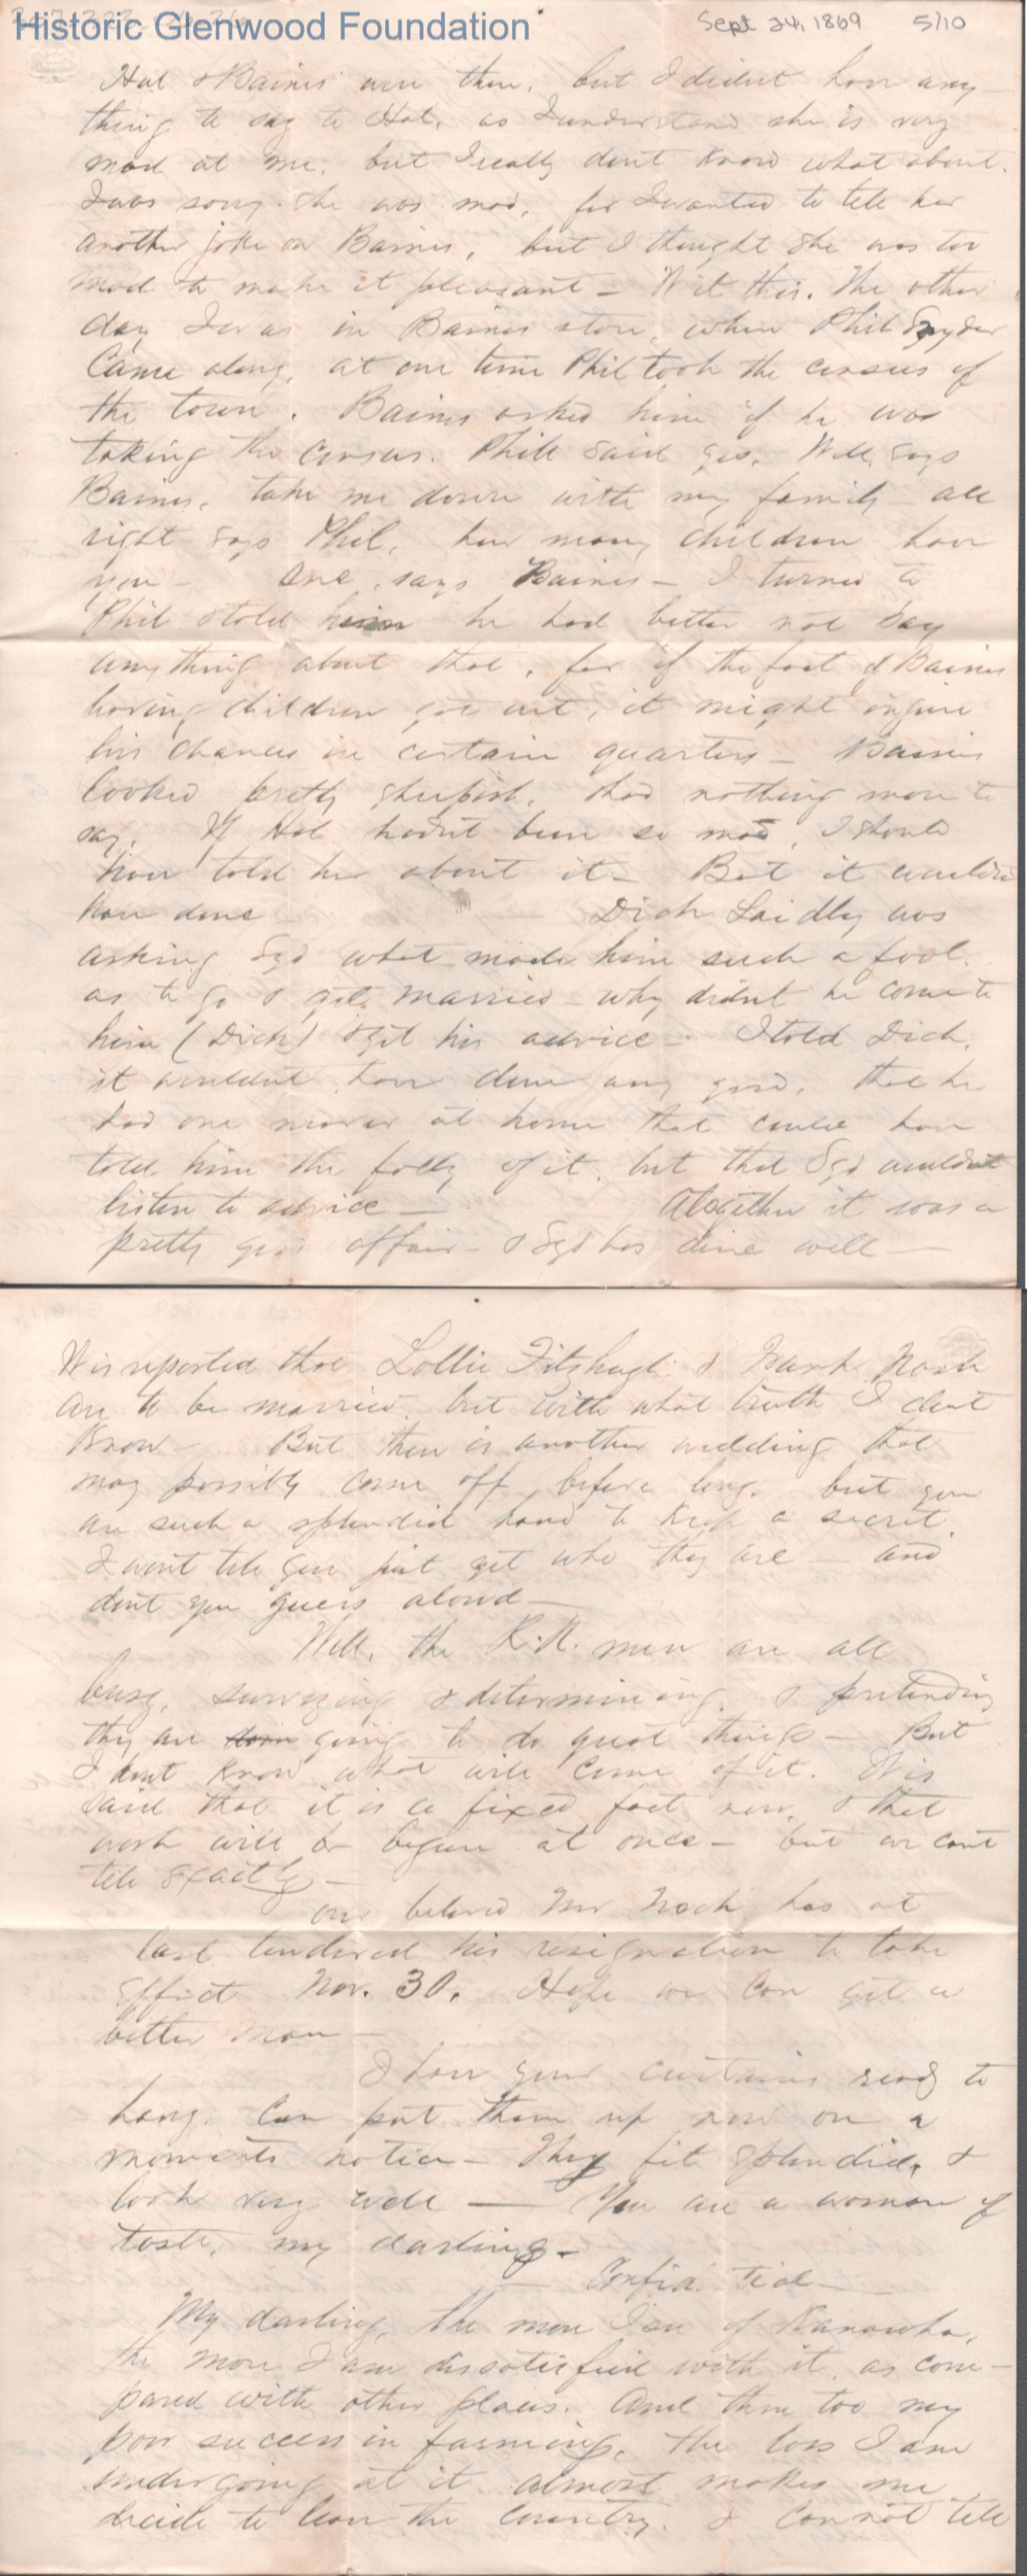 Historic Glenwood Foundation
Sept 24, 1869 5/10
Hal & Baines were there, but I didnt have any
thing to say to Hal, as I understand she is very
mad at me, but I really dont know what about.
I was sorry she was mad, for I wanted to tell her
another joke on Baines, but I thought she was too
mad to make it pleasant - It is this. The other
day I was in Baines store, when Phil Snyder
came along, at one time Phil took the census of
the town. Baines asked him if he was
taking the census. Phill said yes. Well, says
Baines, take me down with my family - all
right says Phil, how many children have
you - One, says Baines - I turned to
Phil & told him he had better not say
anything about that, for if the fact of Baines
having children got out, it might injure
his chances in certain quarters - Baines
looked pretty sheepish, & had nothing more to
say. If Hal hadnt been so mad, I should
have told her about it - But it wouldnt
have done - Dick Laidley was
asking Syd what made him such a fool
as to go & get married - why didnt he come to
him (Dick) & get his advice - I told Dick,
it wouldnt have done any good, that he
had one nearer at home that could have
told him the folly of it, but that Syd wouldnt
listen to advice - Altogether it was a
pretty good affair - & Syd has done well -
It is reported that Lollie Fitzhugh & Nash
are to be married, but with what truth I dont
know - But there is another wedding that
may possibly come off before long, but you
are such a splendid hand to keep a secret,
I wont tell you just yet who they are and
dont you guess aloud -
Well, the R.R. men are all
busy, surveying & determining, & pretending
they are going to do great things - But
I dont know what will come of it. It is
said that it is a fixed fact now, & that
work will be begun at once - but we cant
tell exactly -
Our beloved Mr Noch has at
last tendered his resignation to take
effect Nov. 30. Hope we can get a
better man -
I have your curtains ready to
hang. Can put them up now on a
moments notice - They fit splendid, &
look very well - You are a woman of
taste, my darling -
Confid. tial -
My darling, the more I see of Kanawha,
the more I am dissatisfied with it, as com-
pared with other places. And then too my
poor success in farming, the loss I am
undergoing at it almost makes me
decide to leave the country. I cannot tell